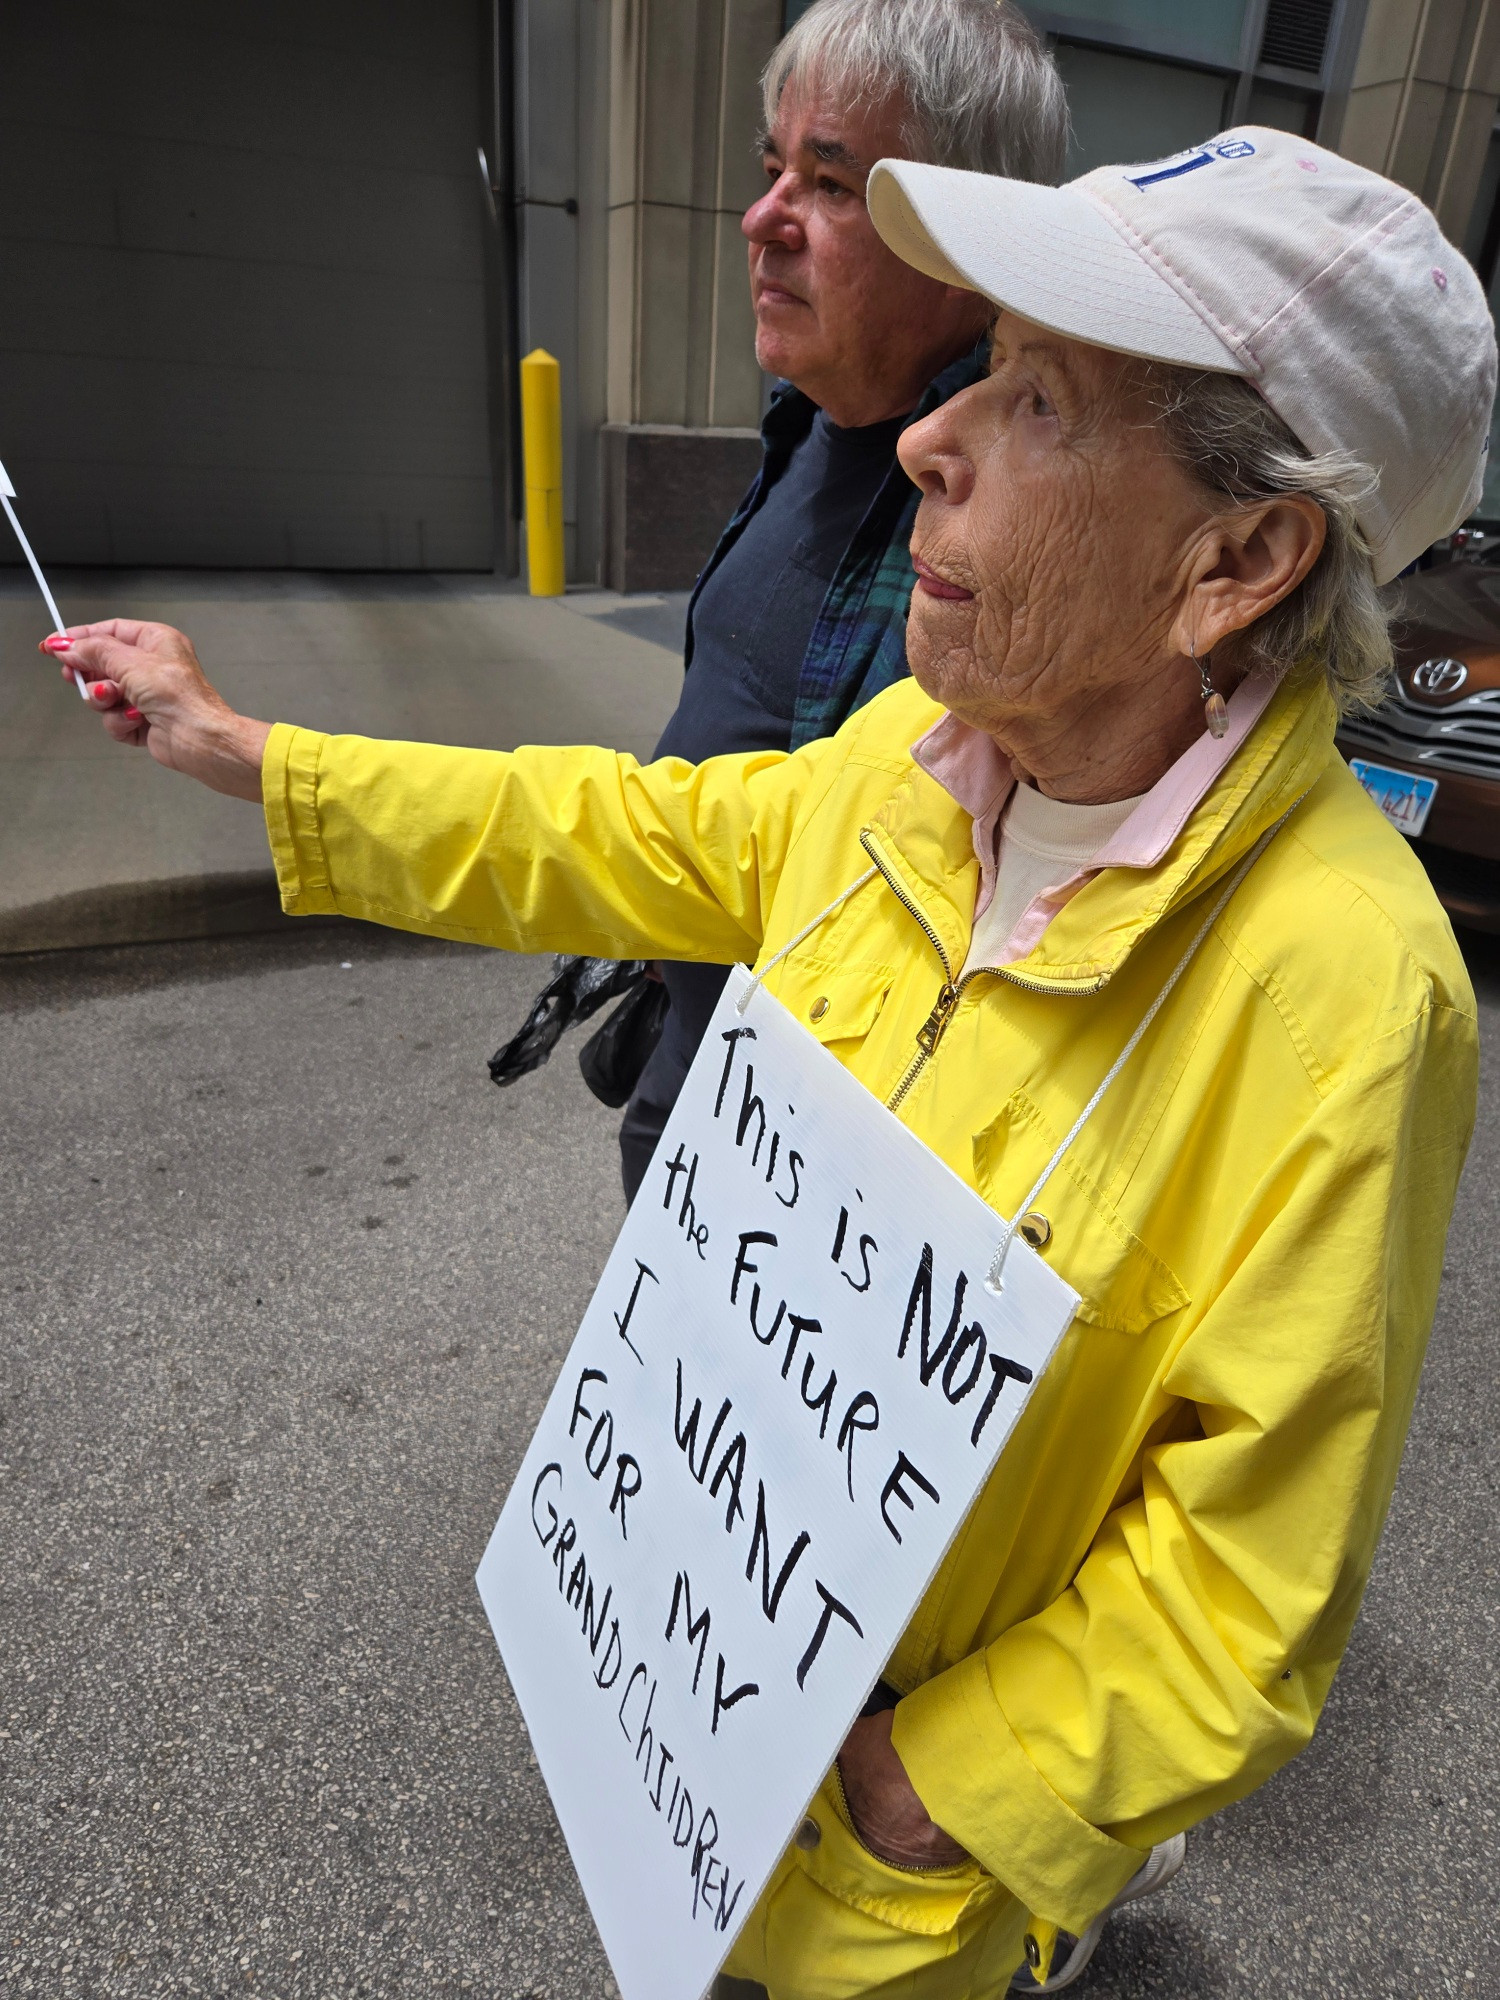 This is NOT
the FUTURE
I WANT
FOR MY
GRANDChIlDREN
4217